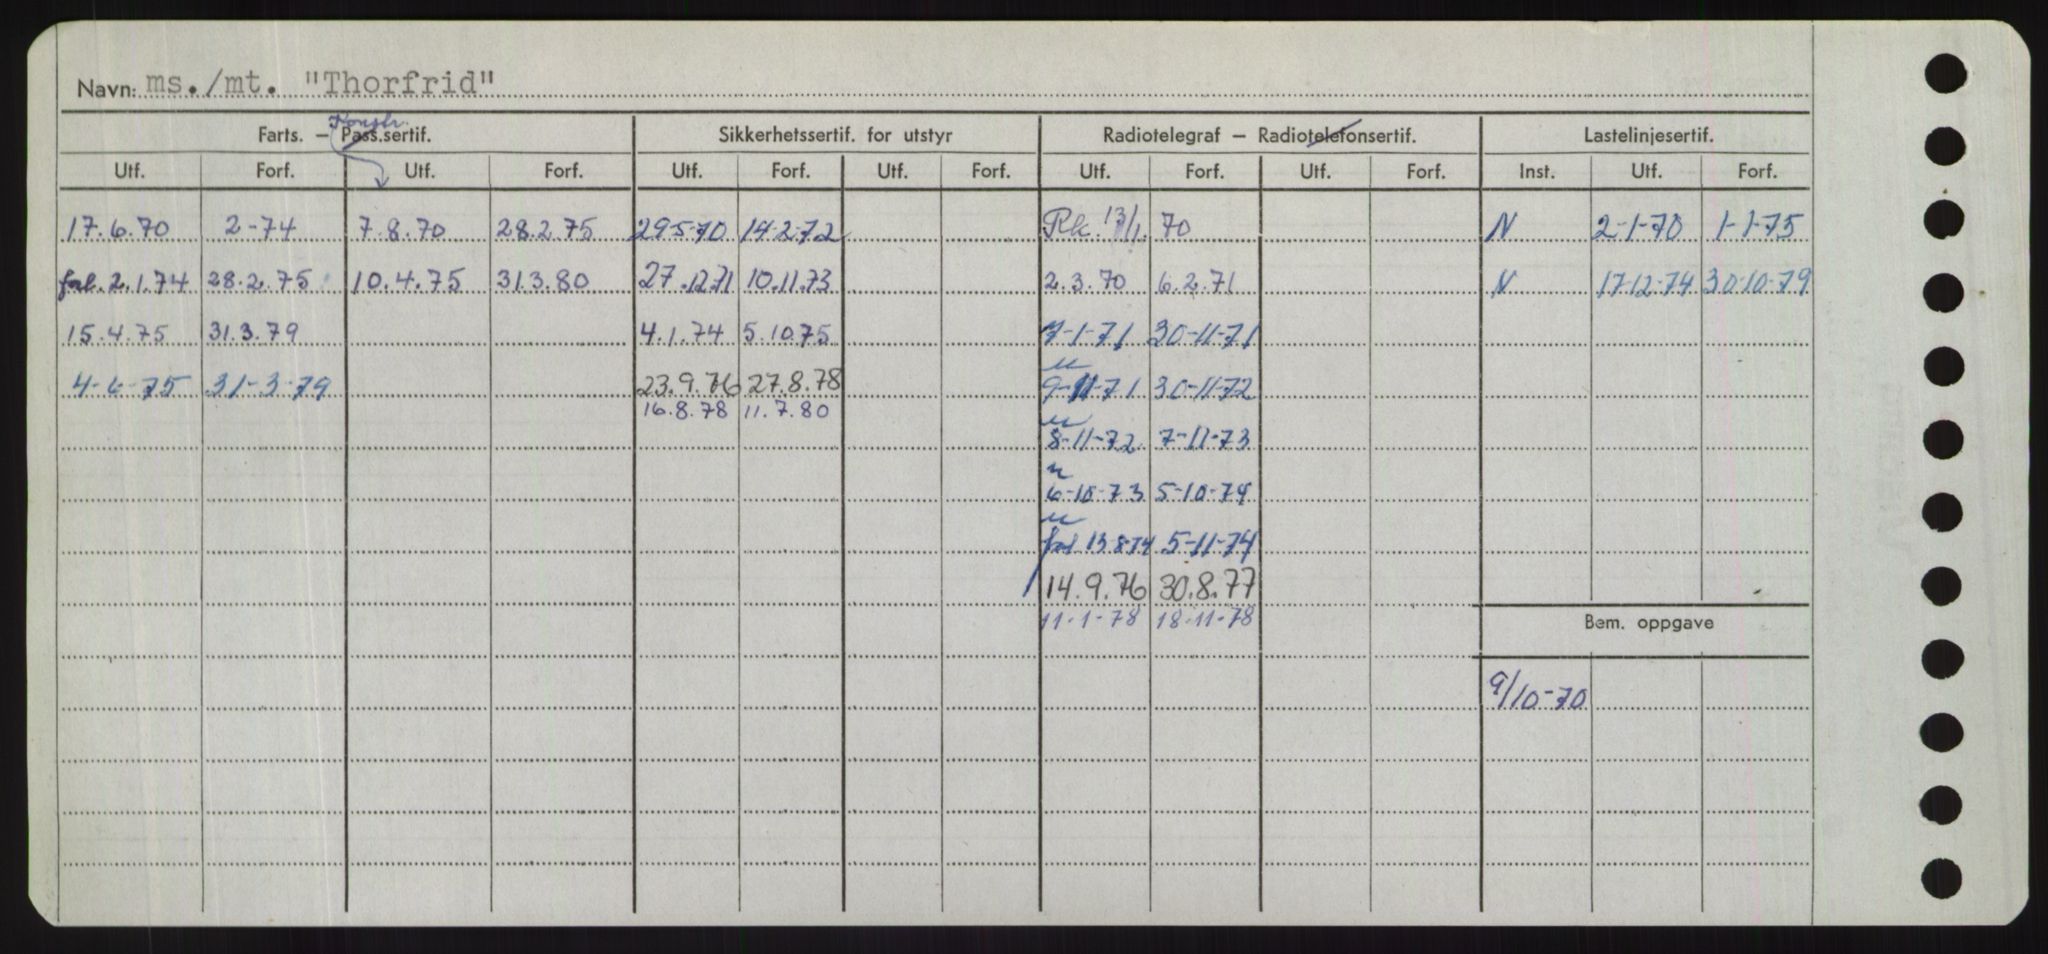 Navn: ms./mt. "Thorfrid"
Konstr.
Farts. – Pass.sertif. Sikkerhetssertif. for utstyr Radiotelegraf – Radiotelefonsertif. Lastelinjesertif.
Utf. Forf. Utf. Forf. Utf. Forf. Utf. Forf. Utf. Forf. Utf. Forf. Inst. Utf. Forf.
17.6.70 2-74 7.8.70 28.2.75 29-5-70 14-2-72 Rk. 13/1. 70 N 2-1-70 1-1-75
forl. 2.1.74 28.2.75 10.4.75 31.3.80 27.12.71 10.11.73 2.3.70 6.2.71 N 17-12-74 30-10-79
15.4.75 31.3.79 4.1.74 5.10.75 7-1-71 30-11-71
4-6-75 31-3-79 23.9.76 27.8.78 9-11-71 30-11-72
16.8.78 11.7.80
8-11-72 7-11-73
6-10-73 5-10-74
forl 13-8-74 5-11-74
14.9.76 30.8.77
11-1-78 18-11-78
Bem. oppgave
9/10-70